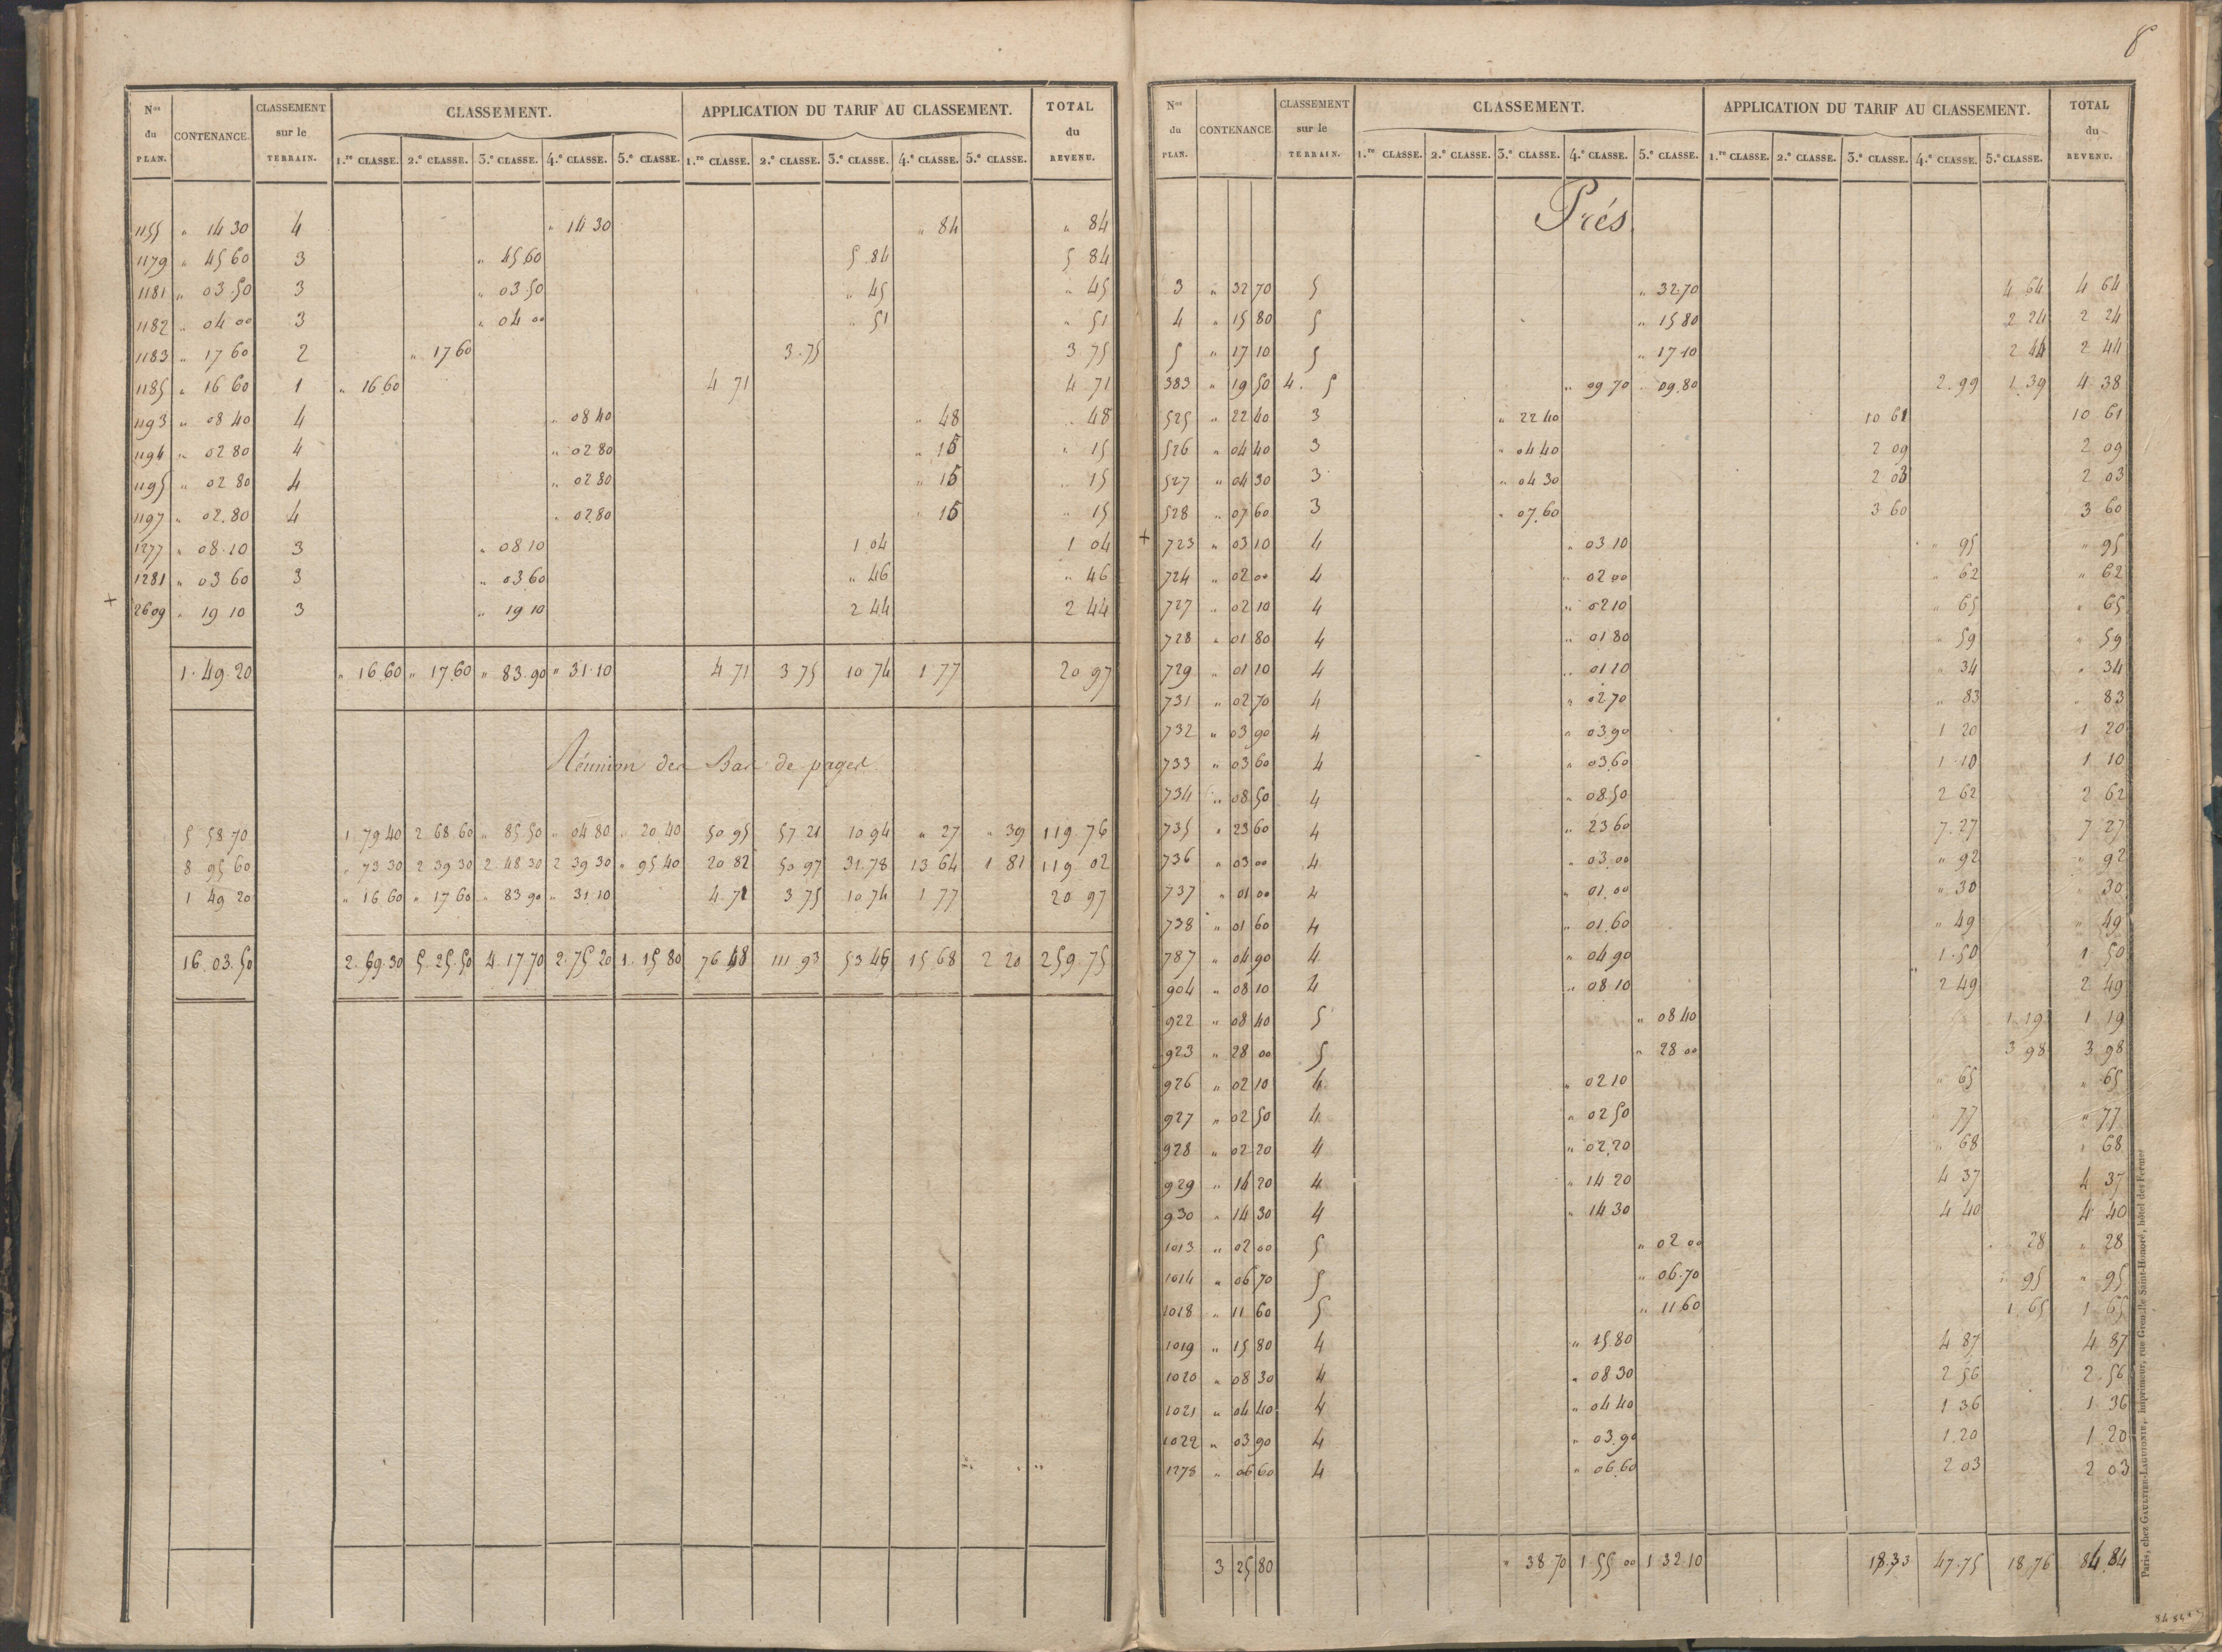 Nos du PLAN. CONTENANCE. CLASSEMENT sur le TERRAIN. CLASSEMENT. APPLICATION DU TARIF AU CLASSEMENT. TOTAL du REVENU.
1.re CLASSE. 2.e CLASSE. 3.e CLASSE. 4.e CLASSE. 5.e CLASSE. 1.re CLASSE. 2.e CLASSE. 3.e CLASSE. 4.e CLASSE. 5.e CLASSE.
1155 " 14 30 4 " 14 30 " 84 " 84
1179 " 45 60 3 " 45 60 5 84 5 84
1181 " 03 50 3 " 03 50 " 45 " 45
1182 " 04 00 3 " 04 00 " 51 " 51
1183 " 17 60 2 " 17 60 3 75 3 75
1185 " 16 60 1 " 16 60 4 71 4 71
1193 " 08 40 4 " 08 40 " 48 " 48
1194 " 02 80 4 " 02 80 " 15 " 15
1195 " 02 80 4 " 02 80 " 15 " 15
1197 " 02 80 4 " 02 80 " 15 " 15
1277 " 08 10 3 " 08 10 1 04 1 04
1281 " 03 60 3 " 03 60 " 46 " 46
+ 2609 " 19 10 3 " 19 10 2 44 2 44
1 49 20 " 16 60 " 17 60 " 83 90 " 31 10 4 71 3 75 10 74 1 77 20 97
Réunion des Bas de pages
5 58 70 1 79 40 2 68 60 " 85 50 " 04 80 " 20 40 50 95 57 21 10 94 " 27 " 39 119 76
8 95 60 " 73 30 2 39 30 2 48 30 2 39 30 " 95 40 20 82 50 97 31 78 13 64 1 81 119 02
1 49 20 " 16 60 " 17 60 " 83 90 " 31 10 4 71 3 75 10 74 1 77 20 97
16 03 50 2 69 30 5 25 50 4 17 70 2 75 20 1 15 80 76 48 111 93 53 46 15 68 2 20 259 75
8
Nos du PLAN. CONTENANCE. CLASSEMENT sur le TERRAIN. CLASSEMENT. APPLICATION DU TARIF AU CLASSEMENT. TOTAL du REVENU.
1.re CLASSE. 2.e CLASSE. 3.e CLASSE. 4.e CLASSE. 5.e CLASSE. 1.re CLASSE. 2.e CLASSE. 3.e CLASSE. 4.e CLASSE. 5.e CLASSE.
Prés
3 " 32 70 5 " 32 70 4 64 4 64
4 " 15 80 5 " 15 80 2 24 2 24
5 " 17 10 5 " 17 10 2 44 2 44
383 " 19 50 4. 5 " 09 70 " 09 80 2 99 1 39 4 38
525 " 22 40 3 " 22 40 10 61 10 61
526 " 04 40 3 " 04 40 2 09 2 09
527 " 04 30 3 " 04 30 2 03 2 03
528 " 07 60 3 " 07 60 3 60 3 60
+ 723 " 03 10 4 " 03 10 " 95 " 95
724 " 02 00 4 " 02 00 " 62 " 62
727 " 02 10 4 " 02 10 " 65 " 65
728 " 01 80 4 " 01 80 " 59 " 59
729 " 01 10 4 " 01 10 " 34 " 34
731 " 02 70 4 " 02 70 " 83 " 83
732 " 03 90 4 " 03 90 1 20 1 20
733 " 03 60 4 " 03 60 1 10 1 10
734 " 08 50 4 " 08 50 2 62 2 62
735 " 23 60 4 " 23 60 7 27 7 27
736 " 03 00 4 " 03 00 " 92 " 92
737 " 01 00 4 " 01 00 " 30 " 30
738 " 01 60 4 " 01 60 " 49 " 49
787 " 04 90 4 " 04 90 1 50 1 50
904 " 08 10 4 " 08 10 2 49 2 49
922 " 08 40 5 " 08 40 1 19 1 19
923 " 28 00 5 " 28 00 3 98 3 98
926 " 02 10 4 " 02 10 " 65 " 65
927 " 02 50 4 " 02 50 " 77 " 77
928 " 02 20 4 " 02 20 " 68 " 68
929 " 14 20 4 " 14 20 4 37 4 37
930 " 14 30 4 " 14 30 4 40 4 40
1013 " 02 00 5 " 02 00 " 28 " 28
1014 " 06 70 5 " 06 70 " 95 " 95
1018 " 11 60 5 " 11 60 1 65 1 65
1019 " 15 80 4 " 15 80 4 87 4 87
1020 " 08 30 4 " 08 30 2 56 2 56
1021 " 04 40 4 " 04 40 1 36 1 36
1022 " 03 90 4 " 03 90 1 20 1 20
1278 " 06 60 4 " 06 60 2 03 2 03
3 25 80 " 38 70 1 55 00 1 32 10 18 33 47 75 18 76 84 84
Paris, chez GAULTIER-LAGUIONIE, imprimeur, rue Grenelle Saint-Honoré, hôtel des Fermes